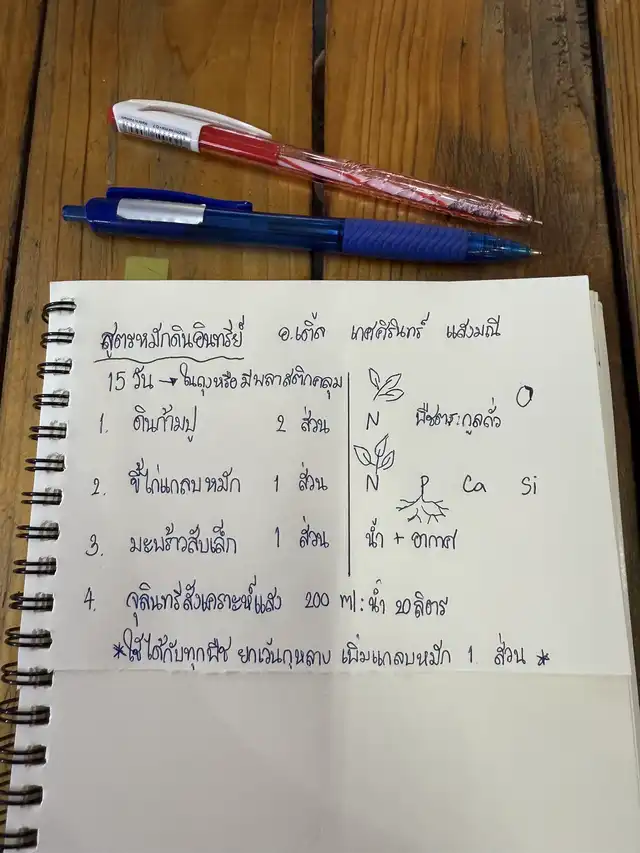 สูตรหมักดินอินทรีย์ อ.เติ้ล เกศศิรินทร์ แสงมณี
15 วัน → ในถุงหรือมีพลาสติกคลุม
1. ดินก้ามปู 2 ส่วน N พืชตระกูลถั่ว
2. ขี้ไก่แกลบหมัก 1 ส่วน N P Ca Si
3. มะพร้าวสับเล็ก 1 ส่วน น้ำ + อากาศ
4. จุลินทรีสังเคราะห์แสง 200 ml : น้ำ 20 ลิตร
*ใช้ได้กับทุกพืช ยกเว้นกุหลาบ เพิ่มแกลบหมัก 1 ส่วน *